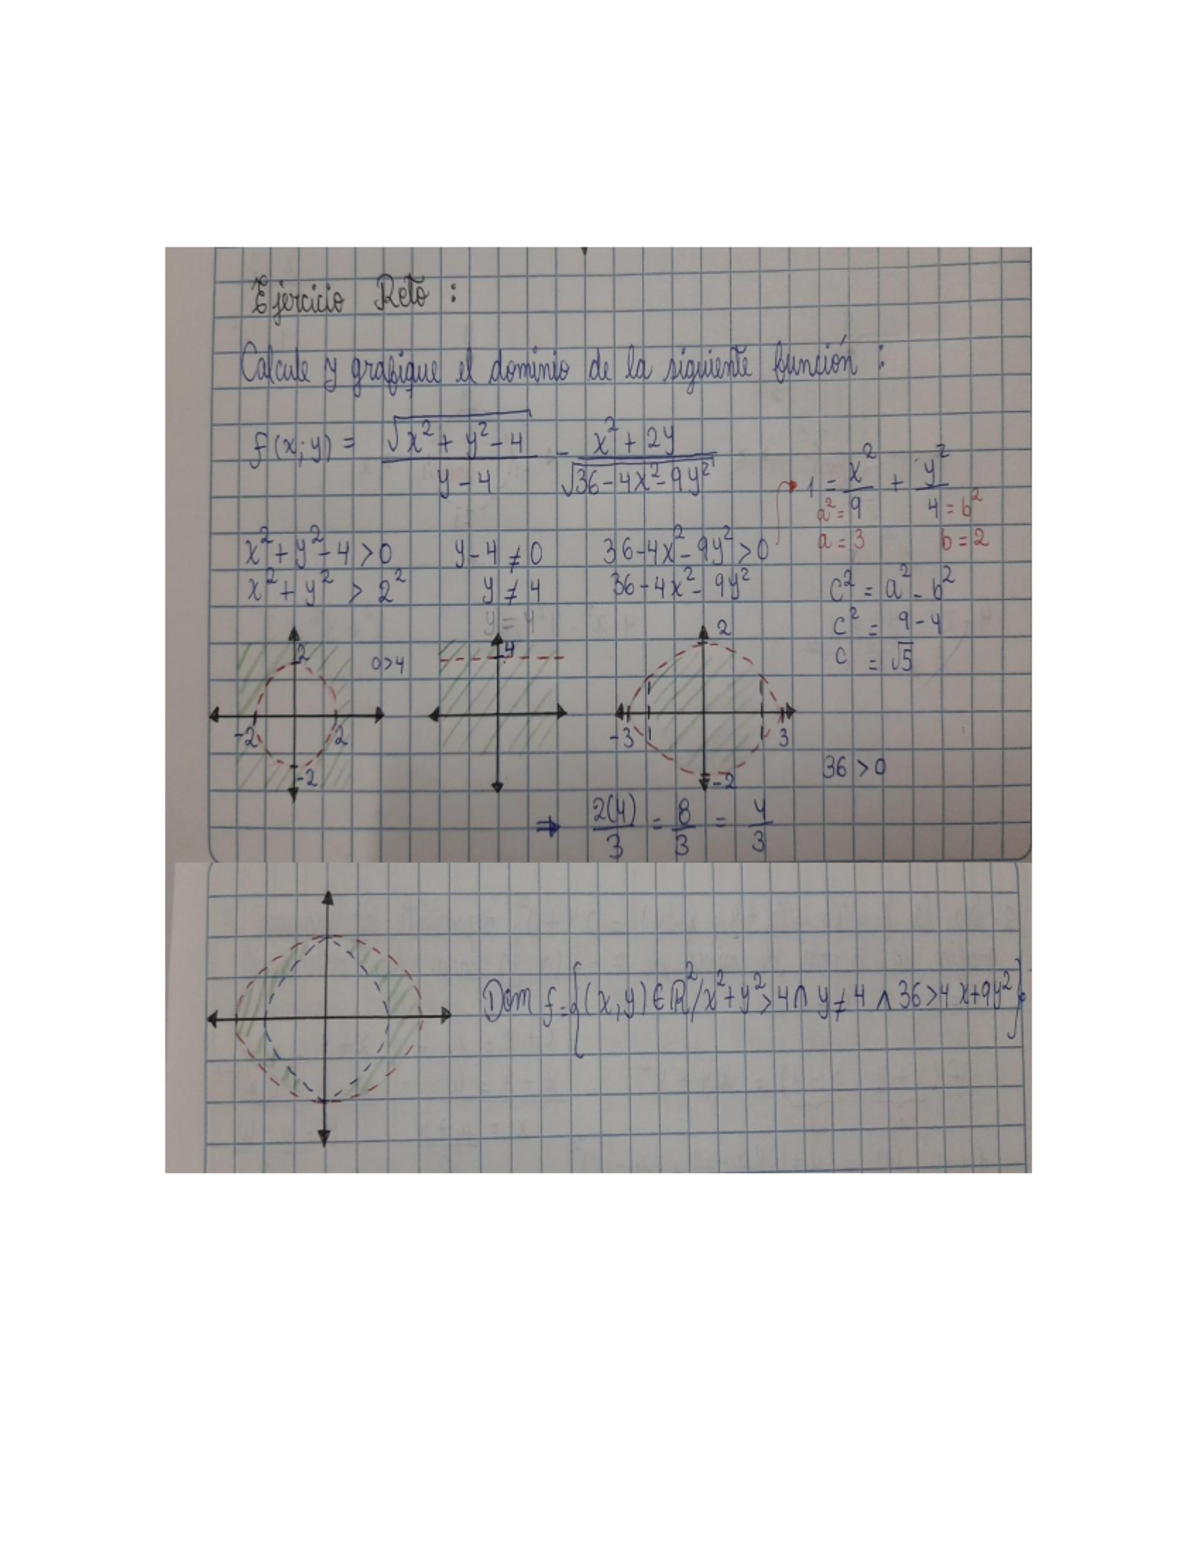 Ejercicio Reto :
Calcule y grafique el dominio de la siguiente función :
f(x;y) = √(x²+y²-4) / (y-4) - (x²+2y) / √(36-4x²-9y²)
1 = x²/9 + y²/4
a²=9 4=b²
a=3 b=2
x²+y²-4>0 y-4≠0 36-4x²-9y²>0
x²+y² > 2² y≠4 36-4x²-9y²
c² = a²-b²
c² = 9-4
c = √5
y=4
2 0>4 4 2
-2 2 -3 3
-2 -2
36>0
⇒ 2(4)/3 = 8/3 = 4/3
Dom f={(x,y)∈R²/x²+y²>4∧y≠4∧36>4x+9y²}